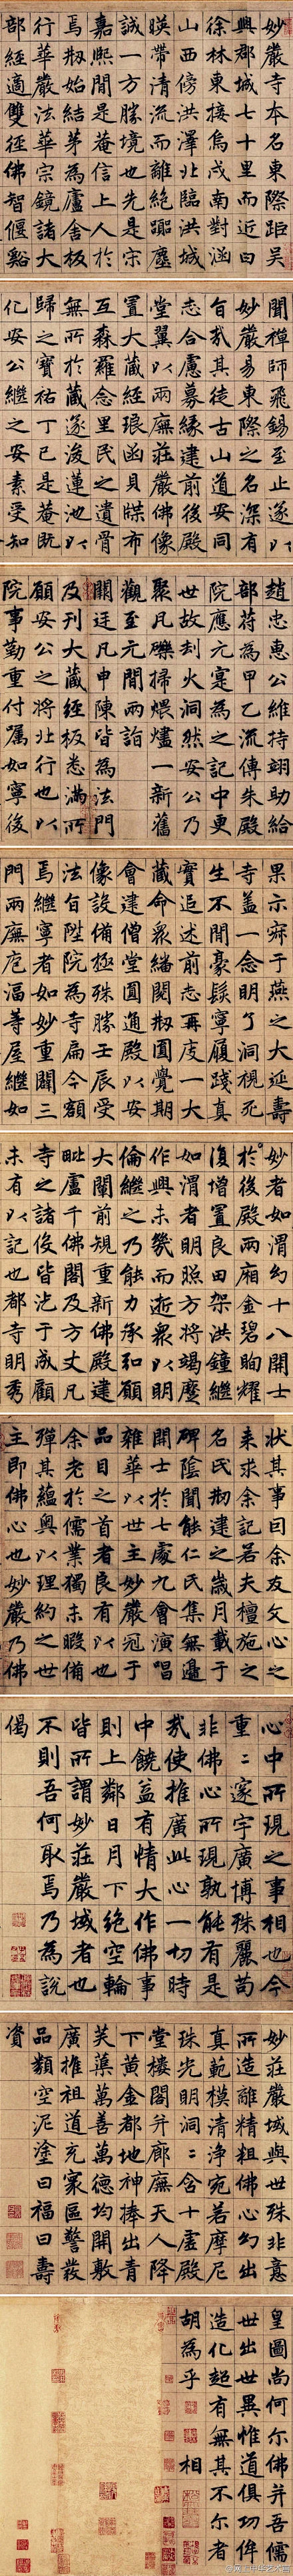 妙嚴寺本名東際距吳
興郡城七十里而近曰
徐林東接烏戍南對涵
山西傍洪澤北臨洪城
映帶清流而離絕囂塵
誠一方勝境也先是宋
嘉熙間是菴信上人於
焉刱始結茅為廬舍板
行華嚴法華宗鏡諸大
部經適雙徑佛智偃谿
聞禪師飛錫至止遂以
妙嚴易東際之名深有
旨哉其徒古山道安同
志合慮募緣建前後殿
堂翼以兩廡莊嚴佛像
置大藏經琅函貝牒布
互森羅念里民之遺骨
無所於藏遂浚蓮池以
歸之寶祐丁巳是菴既
化安公繼之安素受知
趙忠惠公維持翊助給
部符為甲乙流傳朱殿
院應元寔為之記中更
世故刦火洞然安公乃
聚凡礫掃煨燼一新舊
觀至元間兩詣
闕廷凡申陳皆為法門
及刊大藏經板悉滿所
願安公之將北行也以
院事勤重付囑如寧後
果示寂于燕之大延壽
寺蓋一念明了洞視死
生不間豪髮寧履踐真
實追述前志再庋一大
藏命衆緇閱刱圓覺期
會建僧堂圓通殿以安
像設備極殊勝壬辰受
法旨陞院為寺扁今額
焉繼寧者如妙重闢三
門兩廡庖湢等屋繼如
妙者如渭幻十八開士
於後殿兩廂金碧眴耀
復增置良田架洪鐘繼
如渭者明照方將竭麼
作興未幾而逝衆以明
倫繼之乃能力承和願
大闡前規重新佛殿建
毗盧千佛閣及方丈凡
寺之諸役皆汔于成顧
未有以記也都寺明秀
狀其事囙余友文心之
來求余記若夫檀施之
名氏刱建之歲月載于
碑陰聞能仁氏集無邊
開士於七處九會演唱
雜華以世主妙嚴冠于
品目之首者良有以也
余老於儒業獨未暇備
殫其蘊奥以理約之世
主即佛心也妙嚴乃佛
心中所現之事相也今
重重邃宇廣博殊麗苟
非佛心所現孰能有是
哉使推廣此心一切時
中饒益有情大作佛事
則上鄰日月下絕空輪
皆所謂妙莊嚴域者也
不則吾何取焉乃為說
偈
妙莊嚴域與世殊非意
所造離精粗佛心幻出
真範模清淨宛若摩尼
珠光明洞洞含十虛殿
堂樓閣并廊廡天人降
下黃金都地神捧出青
芙蕖萬善萬德均開敷
廣推祖道充家區警發
品類空泥塗曰福曰壽
資
皇圖尚何尔佛并吾儒
世出世異惟道俱功侔
造化超有無其不尔者
胡為乎 相